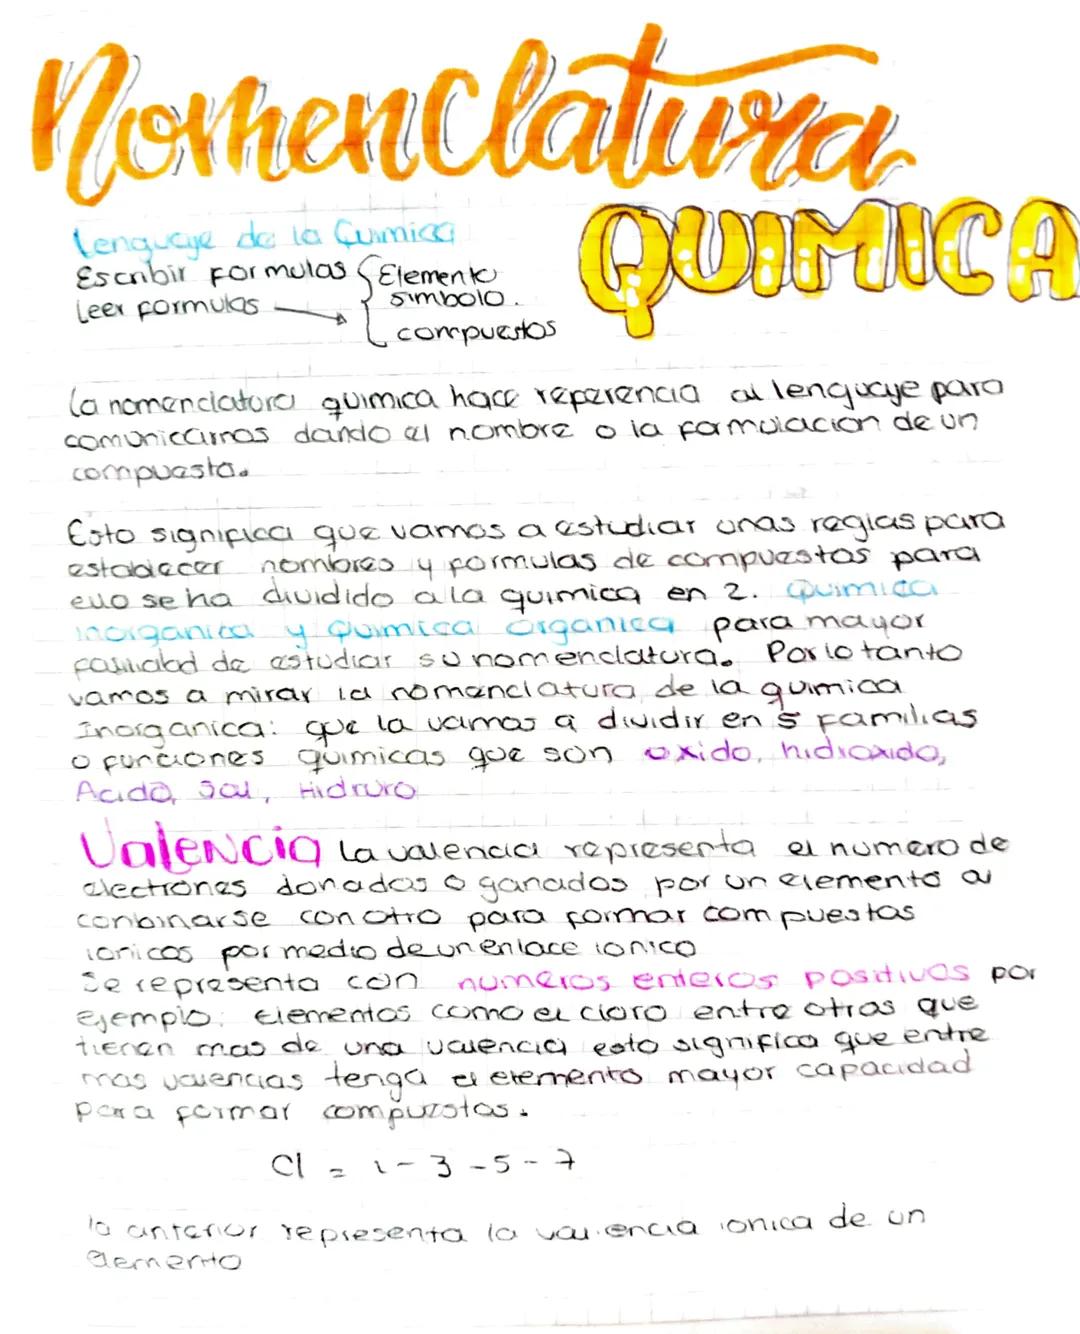 Nomenclatura
QUIMICA
Lenguaje de la Quimica
Escribir formulas { Elemento
Leer formulas → simbolo.
compuestos
La nomenclatura quimica hace referencia al lenguaje para
comunicarnos dando el nombre o la formulacion de un
compuesto.
Esto significa que vamos a estudiar unas reglas para
establecer nombres y formulas de compuestos para
ello se ha dividido a la quimica en 2. Quimica
inorganica y Quimica Organica para mayor
facilidad de estudiar su nomenclatura. Por lo tanto
vamos a mirar la nomenclatura de la quimica
Inorganica: que la vamos a dividir en 5 familias
o funciones quimicas que son oxido, hidroxido,
Acido, Sal, Hidruro
Valencia La valencia representa el numero de
electrones donados o ganados por un elemento al
conbinarse con otro para formar compuestos
ionicos por medio de un enlace ionico
Se representa con numeros enteros positivos por
ejemplo: Elementos como el cloro entre otros que
tienen mas de una valencia esto significa que entre
mas valencias tenga el elemento mayor capacidad
para formar compuestos.
Cl = 1 - 3 - 5 - 7
lo anterior representa la valencia ionica de un
elemento